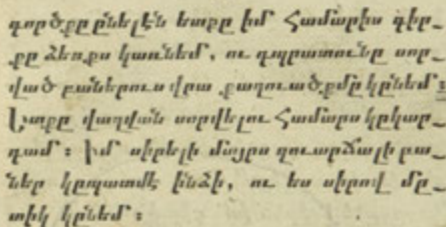 գործքը ընելէն ետքը իմ Համարիս գիր_
քը ձեռքս կառնեմ, ու դպրատունը սոր_
ված բաներուս վրա քաղուածքմը կընեմ։
Ետքը վաղվան սորվելու Համարս կըկար_
դամ։ Իմ սիրելի մայրս զուարճալի բա_
ներ կըպատմէ ինձի, ու ես սիրով մը_
տիկ կընեմ։